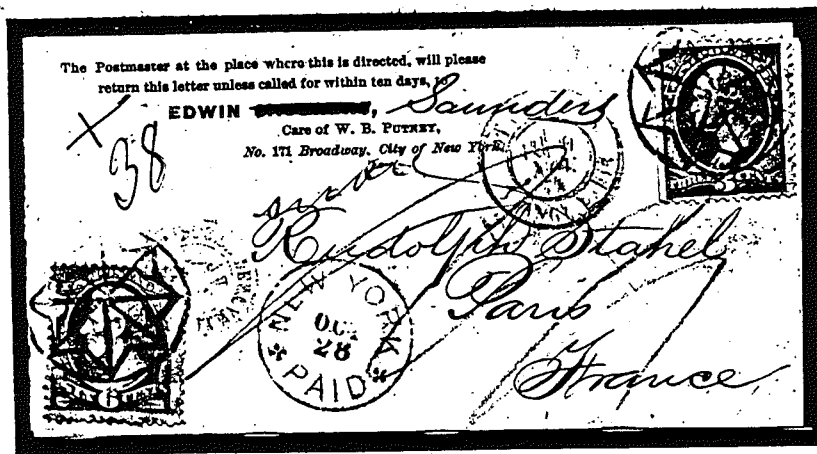 The Postmaster at the place where this is directed, will please
return this letter unless called for within ten days, to
EDWIN , Saunders
Care of W. B. PUTNEY,
No. 171 Broadway, City of New York.
X
38
Rudolph Stahel
Paris
France
NEW YORK
28
PAID
6